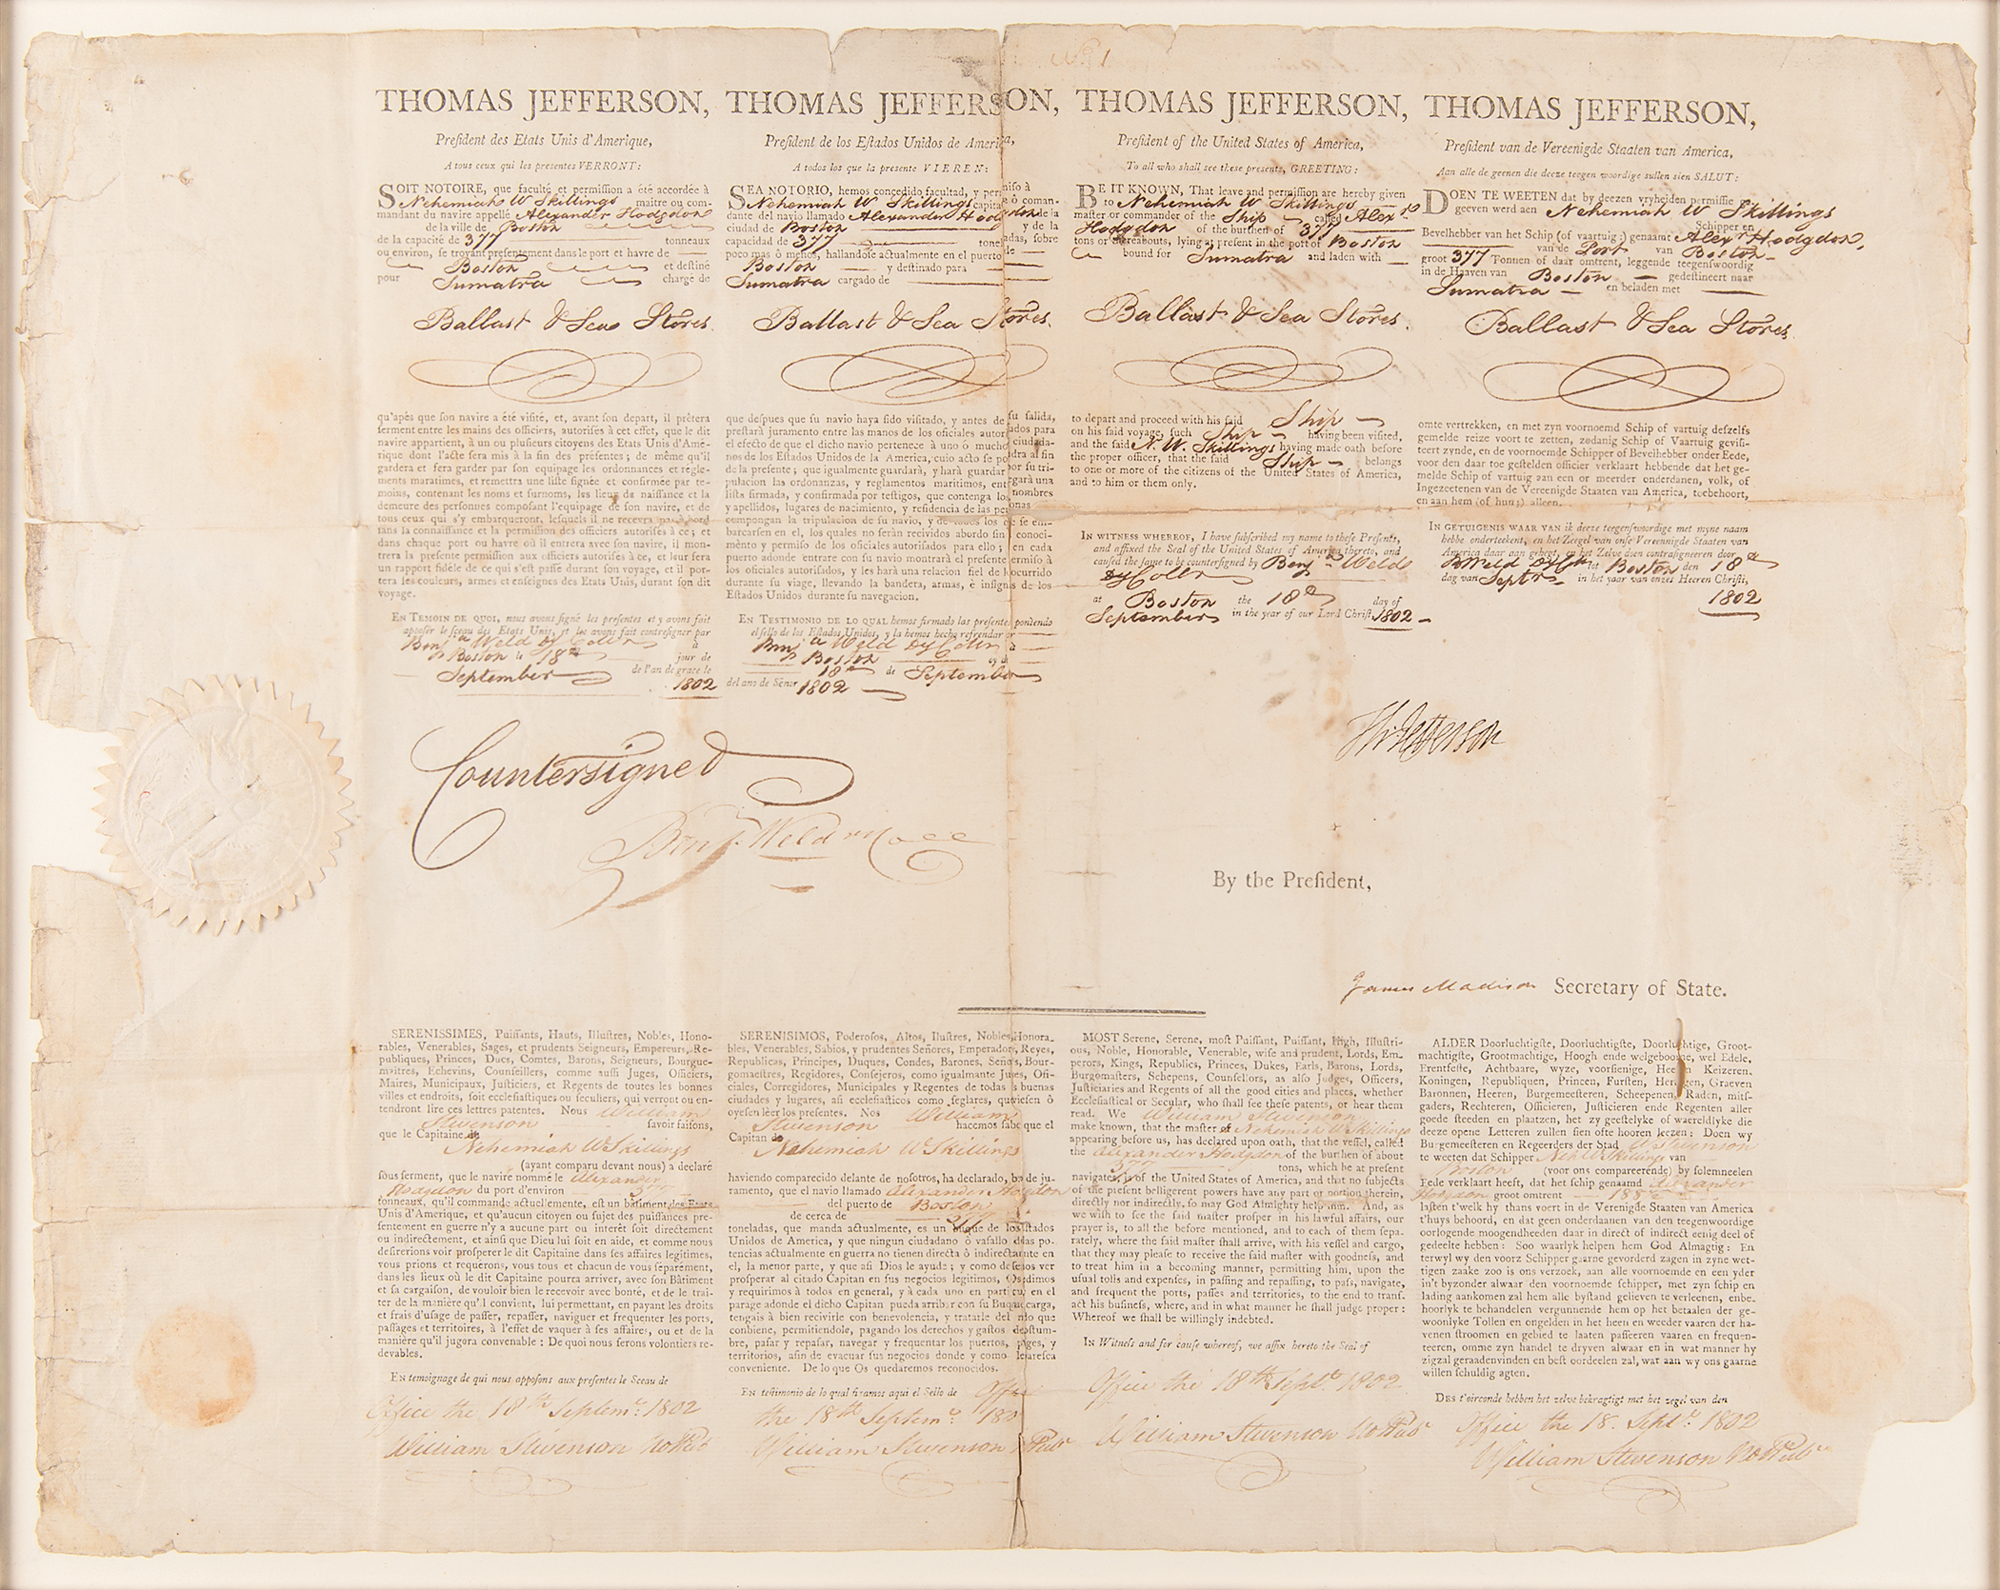 No. 1
THOMAS JEFFERSON,
Preſident des Etats Unis d'Amerique,
A tous ceux qui les preſentes VERRONT:
SOIT NOTOIRE, que faculté et permiſſion a été accordée à
Nehemiah W Skillings maitre ou com-
mandant du navire appellé Alexander Hodgdon
de la ville de Boston
de la capacité de 377 tonneaux
ou environ, ſe trouvant preſentement dans le port et havre de
Boston et deſtiné
pour Sumatra chargé de
Ballast & Sea Stores
qu'apès que ſon navire a été viſité, et, avant ſon depart, il prêtera
ſerment entre les mains des officiers, autoriſés à cet effet, que le dit
navire appartient, à un ou pluſieurs citoyens des Etats Unis d'Amé-
rique dont l'acte ſera mis à la fin des préſentes; de même qu'il
gardera et fera garder par ſon equipage les ordonnances et régle-
ments maratimes, et remettra une liſte ſignée et confirmée par te-
moins, contenant les noms et ſurnoms, les lieux de naiſſance et la
demeure des perſonnes compoſant l'equipage de ſon navire, et de
tous ceux qui s'y embarqueront, leſquels il ne recevra pas à bord
ſans la connaiſſance et la permiſſion des officiers autoriſés à ce; et
dans chaque port ou havre où il entrera avec ſon navire, il mon-
trera la preſente permiſſion aux officiers autoriſés à ce, et leur fera
un rapport fidèle de ce qui s'eſt paſſé durant ſon voyage, et il por-
tera les couleurs, armes et enſeignes des Etats Unis, durant ſon dit
voyage.
EN TEMOIN DE QUOI, nous avons ſigné les preſentes et y avons fait
appoſer le ſceau des Etats Unis, et les avons fait contreſigner par
Benja Weld Dy Collr à
Boston le 18th jour de
September de l'an de grace le
1802
THOMAS JEFFERSON,
Preſident de los Eſtados Unidos de America,
A todos los que la preſente VIEREN:
SEA NOTORIO, hemos concedido facultad, y permiſo à
Nehemiah W Skillings capita ò coman-
dante del navio llamado Alexander Hodgdon de la
ciudad de Boston y de la
capacidad de 377 toneladas, ſobre
poco mas ò menos, hallandoſe actualmente en el puerto de
Boston y deſtinado para
Sumatra cargado de
Ballast & Sea Stores.
que deſpues que ſu navio haya ſido viſitado, y antes de ſu ſalida,
preſtarà juramento entre las manos de los oficiales autoriſados para
el efecto de que el dicho navio pertenece à uno ò mucho ciudada-
nos de los Eſtados Unidos de la America, cuio acto ſe pondra al fin
de la preſente; que igualmente guardarà, y harà guardar por ſu tri-
pulacion las ordonanzas, y reglamentos maritimos, entregarà una
liſta firmada, y confirmada por teſtigos, que contenga los nombres
y apellidos, lugares de nacimiento, y reſidencia de las perſonas
compongan la tripulacion de ſu navio, y de todos los que ſe em-
barcarſen en el, los quales no ſeràn recividos abordo ſin conoci-
mênto y permiſo de los oficiales autoriſados para ello; en cada
puerto adonde entrare con ſu navio montrarà el preſente permiſo à
los oficiales autoriſados, y les harà una relacion fiel de lo ocurrido
durante ſu viage, llevando la bandera, armas, è inſignias de los
Eſtados Unidos durante ſu navegacion.
EN TESTIMONIO DE LO QUAL hemas firmado las preſentes poniendo
el ſello de los Eſtados Unidos, y la hemos hecho refrendar por
Benja Weld Dy Collr à
Boston oy dia
18th de September
del ano de Sènor 1802
THOMAS JEFFERSON,
Preſident of the United States of America,
To all who ſhall ſee theſe preſents, GREETING:
BE IT KNOWN, That leave and permiſſion are hereby given
to Nehemiah W Skillings
maſter or commander of the Ship called Alexr
Hodgdon of the burthen of 377
tons or thereabouts, lying at preſent in the port of Boston
bound for Sumatra and laden with
Ballast & Sea Stores.
to depart and proceed with his ſaid Ship
on his ſaid voyage, ſuch Ship having been viſited,
and the ſaid N. W. Skillings having made oath before
the proper officer, that the ſaid Ship belongs
to one or more of the citizens of the United States of America,
and to him or them only.
IN WITNESS WHEREOF, I have ſubſcribed my name to theſe Preſents,
and affixed the Seal of the United States of America thereto, and
cauſed the ſame to be counterſigned by Benja Weld
Dy Collr
at Boston the 18th day of
September in the year of our Lord Chriſt, 1802
THOMAS JEFFERSON,
Preſident van de Vereenigde Staaten van America,
Aan alle de geenen die deeze teegen woordige sullen sien SALUT:
DOEN TE WEETEN dat by deezen vryheiden permiſſie
geeven werd aen Nehemiah W Skillings
Schipper en
Bevelhebber van het Schip (of vaartuig:) genaamt Alexr Hodgdon,
van de Port van Boston
groot 377 Tonnen of daar omtrent, leggende teegenſwoordig
in de Haaven van Boston gedeſtineert naar
Sumatra en beladen met
Ballast & Sea Stores
omte vertrekken, en met zyn voornoemd Schip of vartuig deſzelfs
gemelde reize voort te zetten, zodanig Schip of Vaartuig geviſi-
teert zynde, en de voornoemde Schipper of Bevelhebber onder Eede,
voor den daar toe geſtelden officier verklaart hebbende dat het ge-
melde Schip of vartuig aan een or meerder onderdanen, volk, of
Ingezeetenen van de Vereenigde Staaten van America, toebehoort,
en aan hem (of hun:) alleen.
IN GETUIGENIS WAAR VAN ik deeze teegenſwoordige met myne naam
hebbe onderteekent, en het Zeegel van onſe Vereennigde Staaten van
America daar aan gehegt, en het Zelve doen contraſigneren door
B Weld Dy Collr tot Boston den 18th
dag van Septr in het jaar van onzes Heeren Chriſti,
1802
Countersigned
Benj. Weld
Th: Jefferson
By the Preſident,
James Madison Secretary of State.
SERENISSIMES, Puiſſants, Hauts, Illuſtres, Nobles, Hono-
rables, Venerables, Sages, et prudents Seigneurs, Empereurs, Re-
publiques, Princes, Ducs, Comtes, Barons, Seigneurs, Bourgue-
maîtres, Echevins, Counſeillers, comme auſſi Juges, Officiers,
Maires, Municipaux, Juſticiers, et Regents de toutes les bonnes
villes et endroits, ſoit eccleſiaſtiques ou ſeculiers, qui verront ou en-
tendront lire ces lettres patentes. Nous William
Stevenson ſavoir faiſons,
que le Capitaine de
Nehemiah W Skillings
(ayant comparu devant nous) a declaré
ſous ſerment, que le navire nommé le Alexander
Hodgdon du port d'environ 377
tonneaux, qu'il commande actuellement, eſt un bâtiment des Etats
Unis d'Amerique, et qu'aucun citoyen ou ſujet des puiſſances pre-
ſentement en guerre n'y a aucune part ou interêt ſoit directement
ou indirectement, et ainſi que Dieu lui ſoit en aide, et comme nous
deſirerions voir proſperer le dit Capitaine dans ſes affaires legitimes,
vous prions et requerons, vous tous et chacun de vous ſeparément,
dans les lieux où le dit Capitaine pourea arriver, avec ſon Bâtiment
et ſa cargaiſon, de vouloir bien le recevoir avec bonté, et de le trai-
ter de la manière qu'il convient, lui permettant, en payant les droits
et frais d'uſage de paſſer, repaſſer, naviguer et frequenter les ports,
paſſages et territoires, à l'effet de vaquer à ſes affaires, ou et de la
manière qu'il jugora convenable: De quoi nous ſerons volontiers re-
devables.
EN temoignage de qui nous appoſons aux preſentes le Sceau de
Office the 18th Septemr. 1802
William Stevenson Not Pub
SERENISIMOS, Poderoſos, Altos, Iluſtres, Nobles, Honora-
bles, Venerables, Sabios, y prudentes Señores, Emperadores, Reyes,
Republicas, Principes, Duques, Condes, Barones, Señores, Bour-
gomaeſtres, Regidores, Conſejeros, como igualmente Jueces, Ofi-
ciales, Corregidores, Municipales y Regentes de todas las buenas
ciudades y lugares, aſi eccleſiaſticos como ſeglares, que vieſen ó
oyeſen lèer los preſentes. Nos William
Stevenson hacemos ſabe que el
Capitan de
Nehemiah W Skillings
haviendo comparecido delante de noſotros, ha declarado, baxo de ju-
ramento, que el navio llamado Alexander Hogdon
del puerto de Boston
de cerca de 377
toneladas, que manda actualmente, es un buque de los Eſtados
Unidos de America, y que ningun ciudadano ò vaſallo de las po-
tencias actualmente en guerra no tienen directa ò indirectamente en
el, la menor parte, y que aſi Dios le ayude; y como deſeamos ver
proſperar al citado Capitan en ſus negocios legitimos, Os pedimos
y requirimos à todos en general, y à cada uno en particu, en el
parage adonde el dicho Capitan pueda arribar con ſu Buque carga,
tengais à bien recivirle con benevolencia, y tratarle del modo que
conbiene, permitiendole, pagando los derechos y gaſtos de coſtum-
bre, paſar y repaſar, navegar y frequentar los puertos, pages, y
territorios, afin de evacuar ſus negocios donde y como le pareſca
conveniente. De lo que Os quedaremos reconocidos.
EN teſtimonio de lo qual firamos aqui el Sello de Office
the 18th Septemr. 180
William Stevenson Not Pub
MOST Serene, Serene, moſt Puiſſant, Puiſſant, High, Illuſtri-
ous, Noble, Honorable, Venerable, wiſe and prudent, Lords, Em-
perors, Kings, Republics, Princes, Dukes, Earls, Barons, Lords,
Burgomaſters, Schepens, Counſellors, as alſo Judges, Officers,
Juſticiaries and Regents of all the good cities and places, whether
Eccleſiaſtical or Secular, who ſhall ſee theſe patents, or hear them
read. We William Stevenson
make known, that the maſter of Nehemiah W Skillings
appearing before us, has declared upon oath, that the veſſel, called
the Alexander Hodgdon of the burthen of about
377 tons, which he at preſent
navigates, is of the United States of America, and that no ſubjects
of the preſent belligerent powers have any part or portion therein,
directly nor indirectly, ſo may God Almighty help him. And, as
we wiſh to ſee the ſaid maſter proſper in his lawful affairs, our
prayer is, to all the before mentioned, and to each of them ſepa-
rately, where the ſaid maſter ſhall arrive, with his veſſel and cargo,
that they may pleaſe to receive the ſaid maſter with goodneſs, and
to treat him in a becoming manner, permitting him, upon the
uſual tolls and expenſes, in paſſing and repaſſing, to paſs, navigate,
and frequent the ports, paſſes and territories, to the end to tranſ-
act his buſineſs, where, and in what manner he ſhall judge proper:
Whereof we ſhall be willingly indebted.
IN Witneſs and for cauſe whereof, we affix hereto the Seal of
Office the 18th Septr. 1802
William Stevenson Not Pub
ALDER Doorluchtigſte, Doorluchtigſte, Doorluchtige, Groot-
machtigſte, Grootmachtige, Hoogh ende welgeboorne, wel Edele,
Erentfeſte, Achtbaare, wyze, voorſienige, Heeren Keizeren,
Koningen, Republiquen, Princen, Furſten, Hertogen, Graeven
Baronnen, Heeren, Burgemeeſteren, Scheepenen, Raden, mitſ-
gaders, Rechteren, Officieren, Juſticieren ende Regenten aller
goede ſteeden en plaatzen, het zy geeſtelyke of waereldlyke die
deeze opene Letteren zullen ſien ofte hooren leezen: Doen wy
Burgemeeſteren en Regeerders der Stad W Stevenson
te weeten dat Schipper Neh W Skillings van
Boston (voor ons compareerende) by ſolemneelen
Eede verklaart heeft, dat het ſchip genaamd Alexander
Hodgdon groot omtrent 188½
laſten t'welk hy thans voert in de Verenigde Staaten van America
t'huys behoord, en dat geen onderdaanen van den teegenwoordige
oorlogende moogendheeden daar in direct of indirect eenig deel of
gedeelte hebben: Soo waarlyk helpen hem God Almagtig: En
terwyl wy den voorz Schipper gaarne gevorderd zagen in zyne wet-
tigen zaake zoo is ons verzoek, aan alle voornoemde en een yder
in't byzonder alwaar den voornoemde ſchipper, met zyn ſchip en
lading aankomen zal hem alle byſtand gelieven te verleenen, enbe-
hoorlyk te behandelen vergunnende hem op het betaalen der ge-
woonlyke Tollen en ongelden in het heen en weeder vaaren der ha-
venen ſtroomen en gebied te laaten paſſeeren vaaren en frequen-
teeren, omme zyn handel te dryven alwaar en in wat manner hy
zigzal geraadenvinden en beſt oordeelen zal, war aan wy ons gaarne
willen ſchuldig agten.
DES t'oirconde hebben het zelve bekragtigt met het zegel van den
Office the 18. Septr. 1802
William Stevenson Not Pub